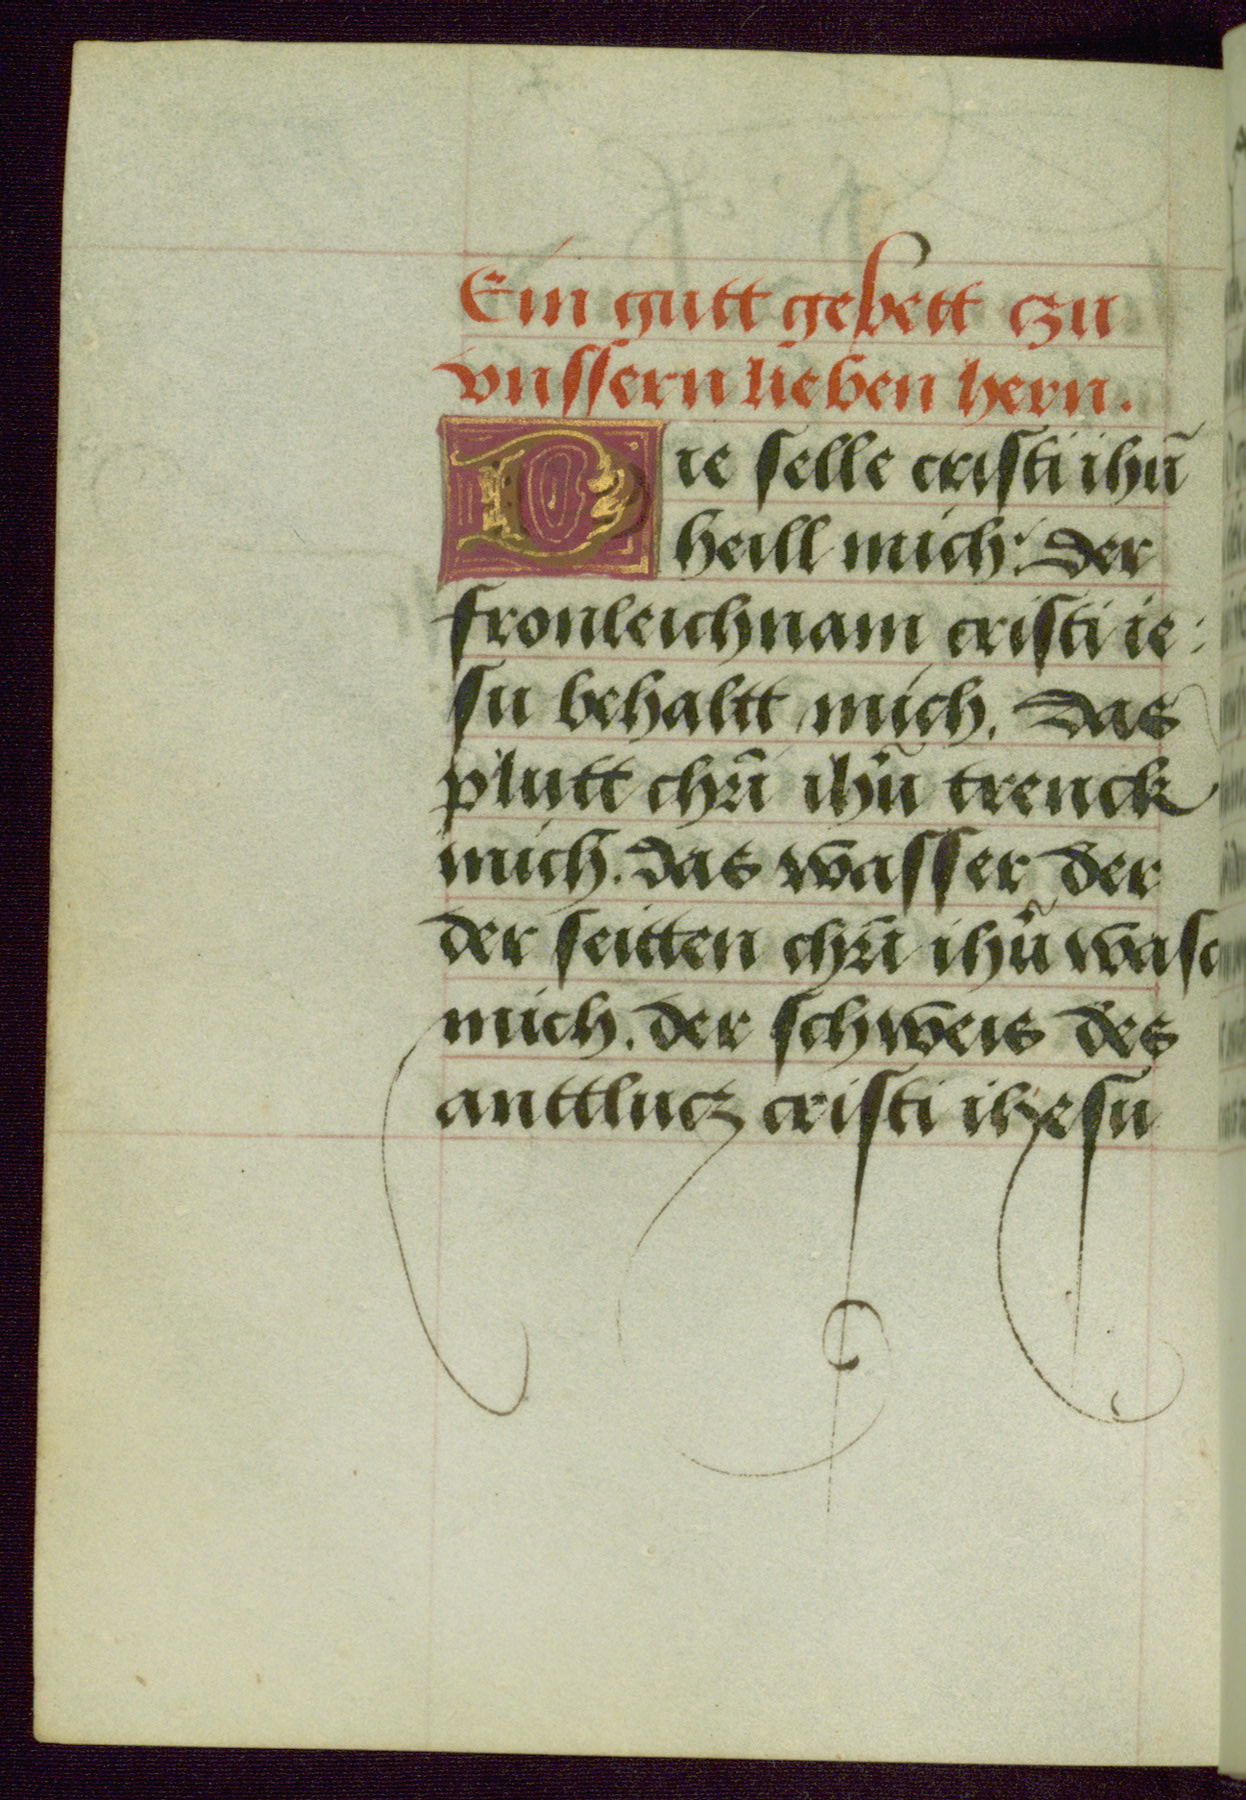 Ein gutt gebett czu
vnssern lieben hern.
Die selle cristi ihū
heill mich: Der
fronleichnam cristi ie:
su behaltt mich. Das
plutt chrī ihū trenck
mich. Das wasser der
der seitten chrī ihū wasc
mich. der schweis des
anttlucz cristi ihesu